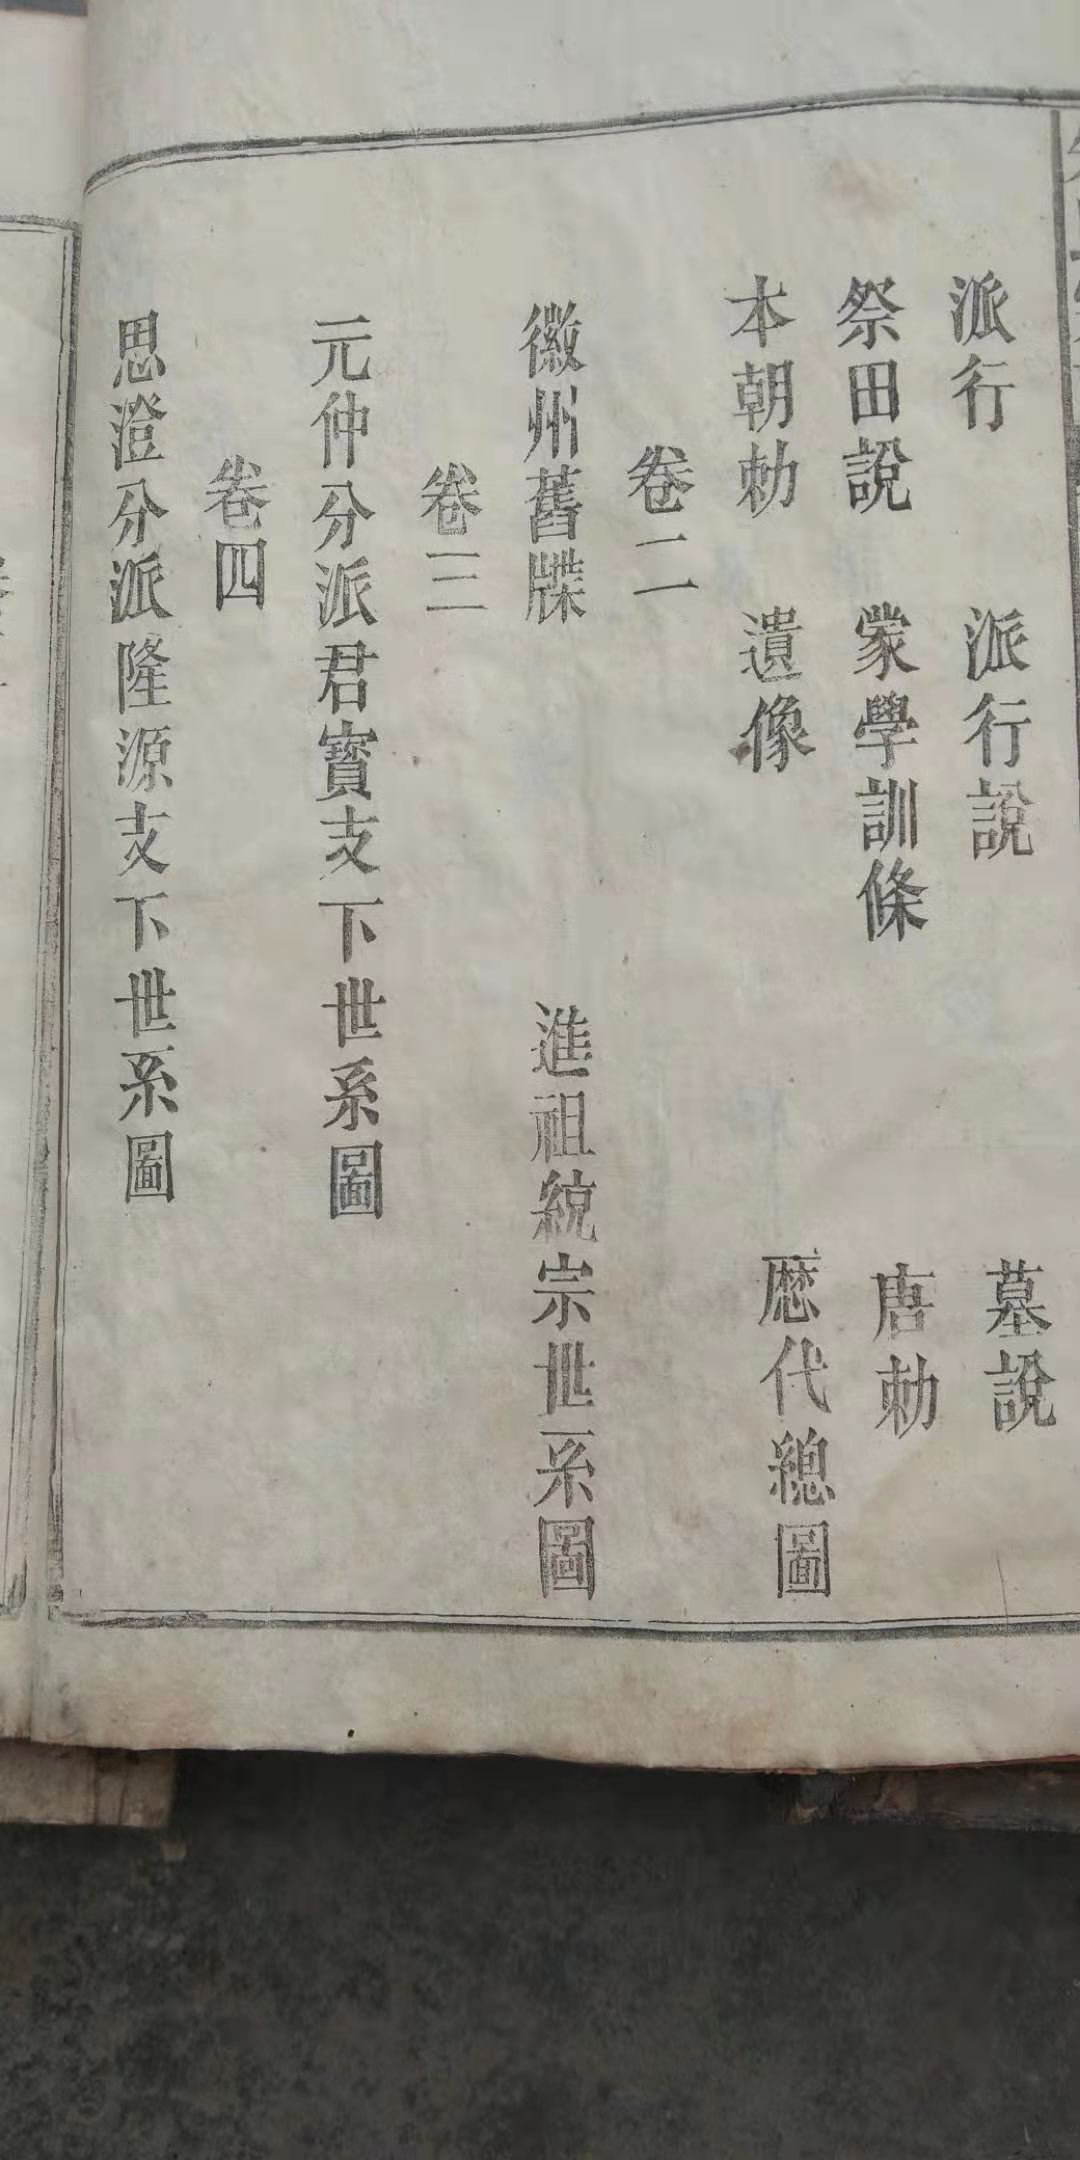 派行 派行說 墓說
祭田說 蒙學訓條 唐勅
本朝勅 遺像 歷代總圖
卷二
徽州舊牒 進祖統宗世系圖
卷三
元仲分派君寶支下世系圖
卷四
思澄分派隆源支下世系圖